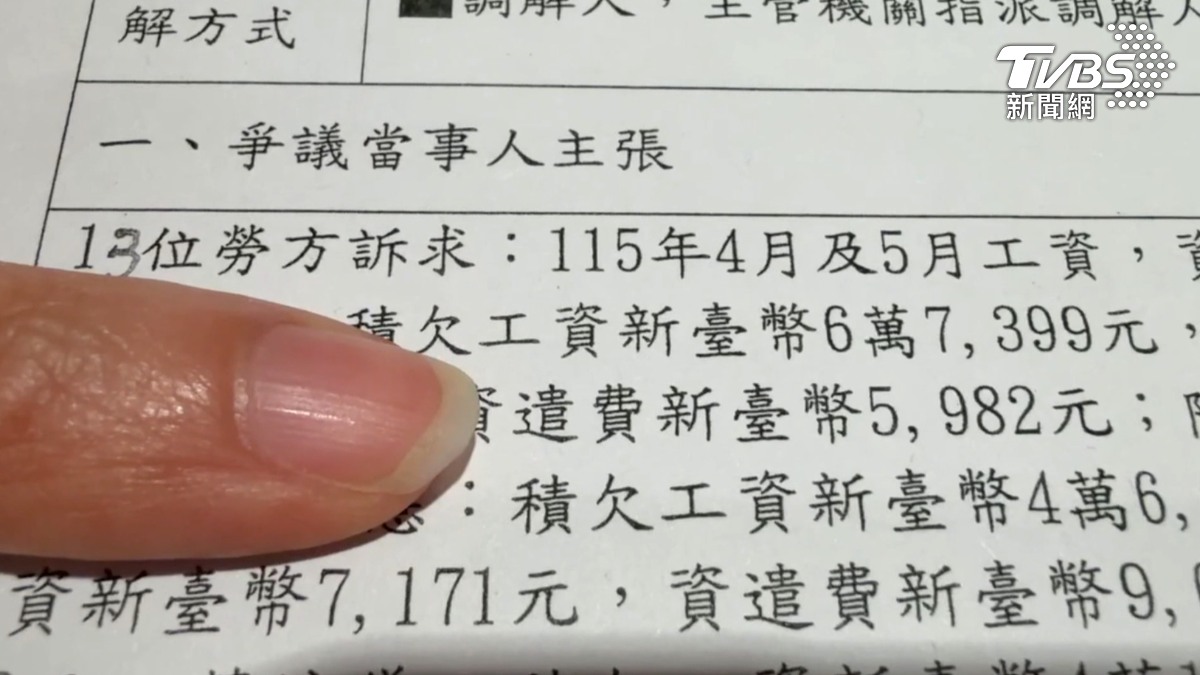 解方式
■調解人,主管機關指派調解人
TVBS
新聞網
一、爭議當事人主張
13位勞方訴求：115年4月及5月工資，
積欠工資新臺幣6萬7,399元，
資遣費新臺幣5,982元；
：積欠工資新臺幣4萬6,
資新臺幣7,171元，資遣費新臺幣9,